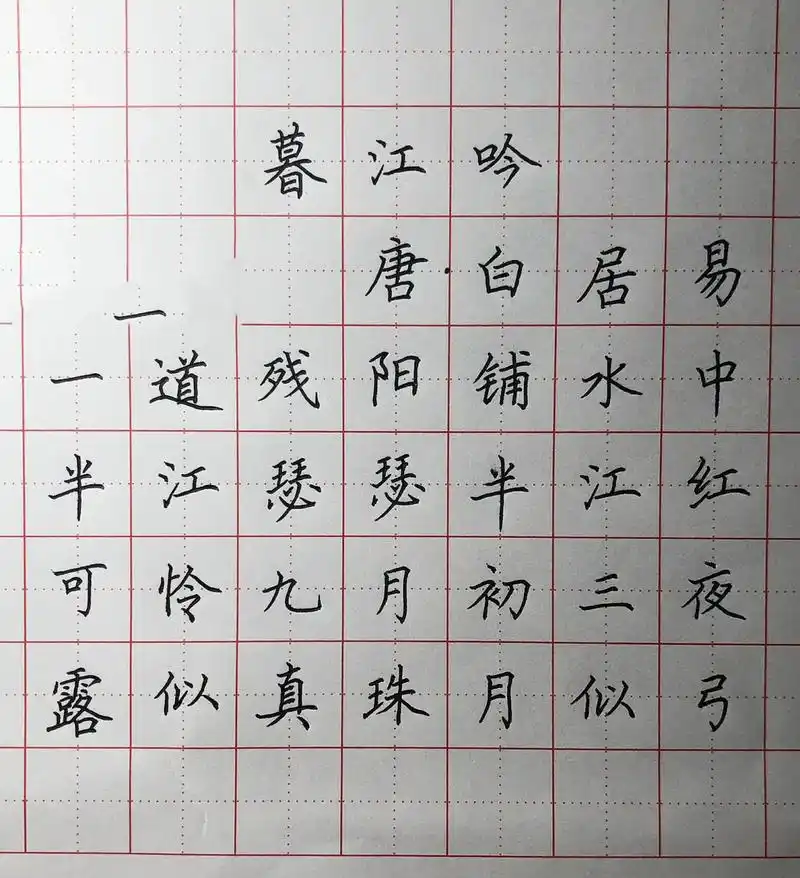 暮江吟
唐白居易
一
一道残阳铺水中
半江瑟瑟半江红
可怜九月初三夜
露似真珠月似弓